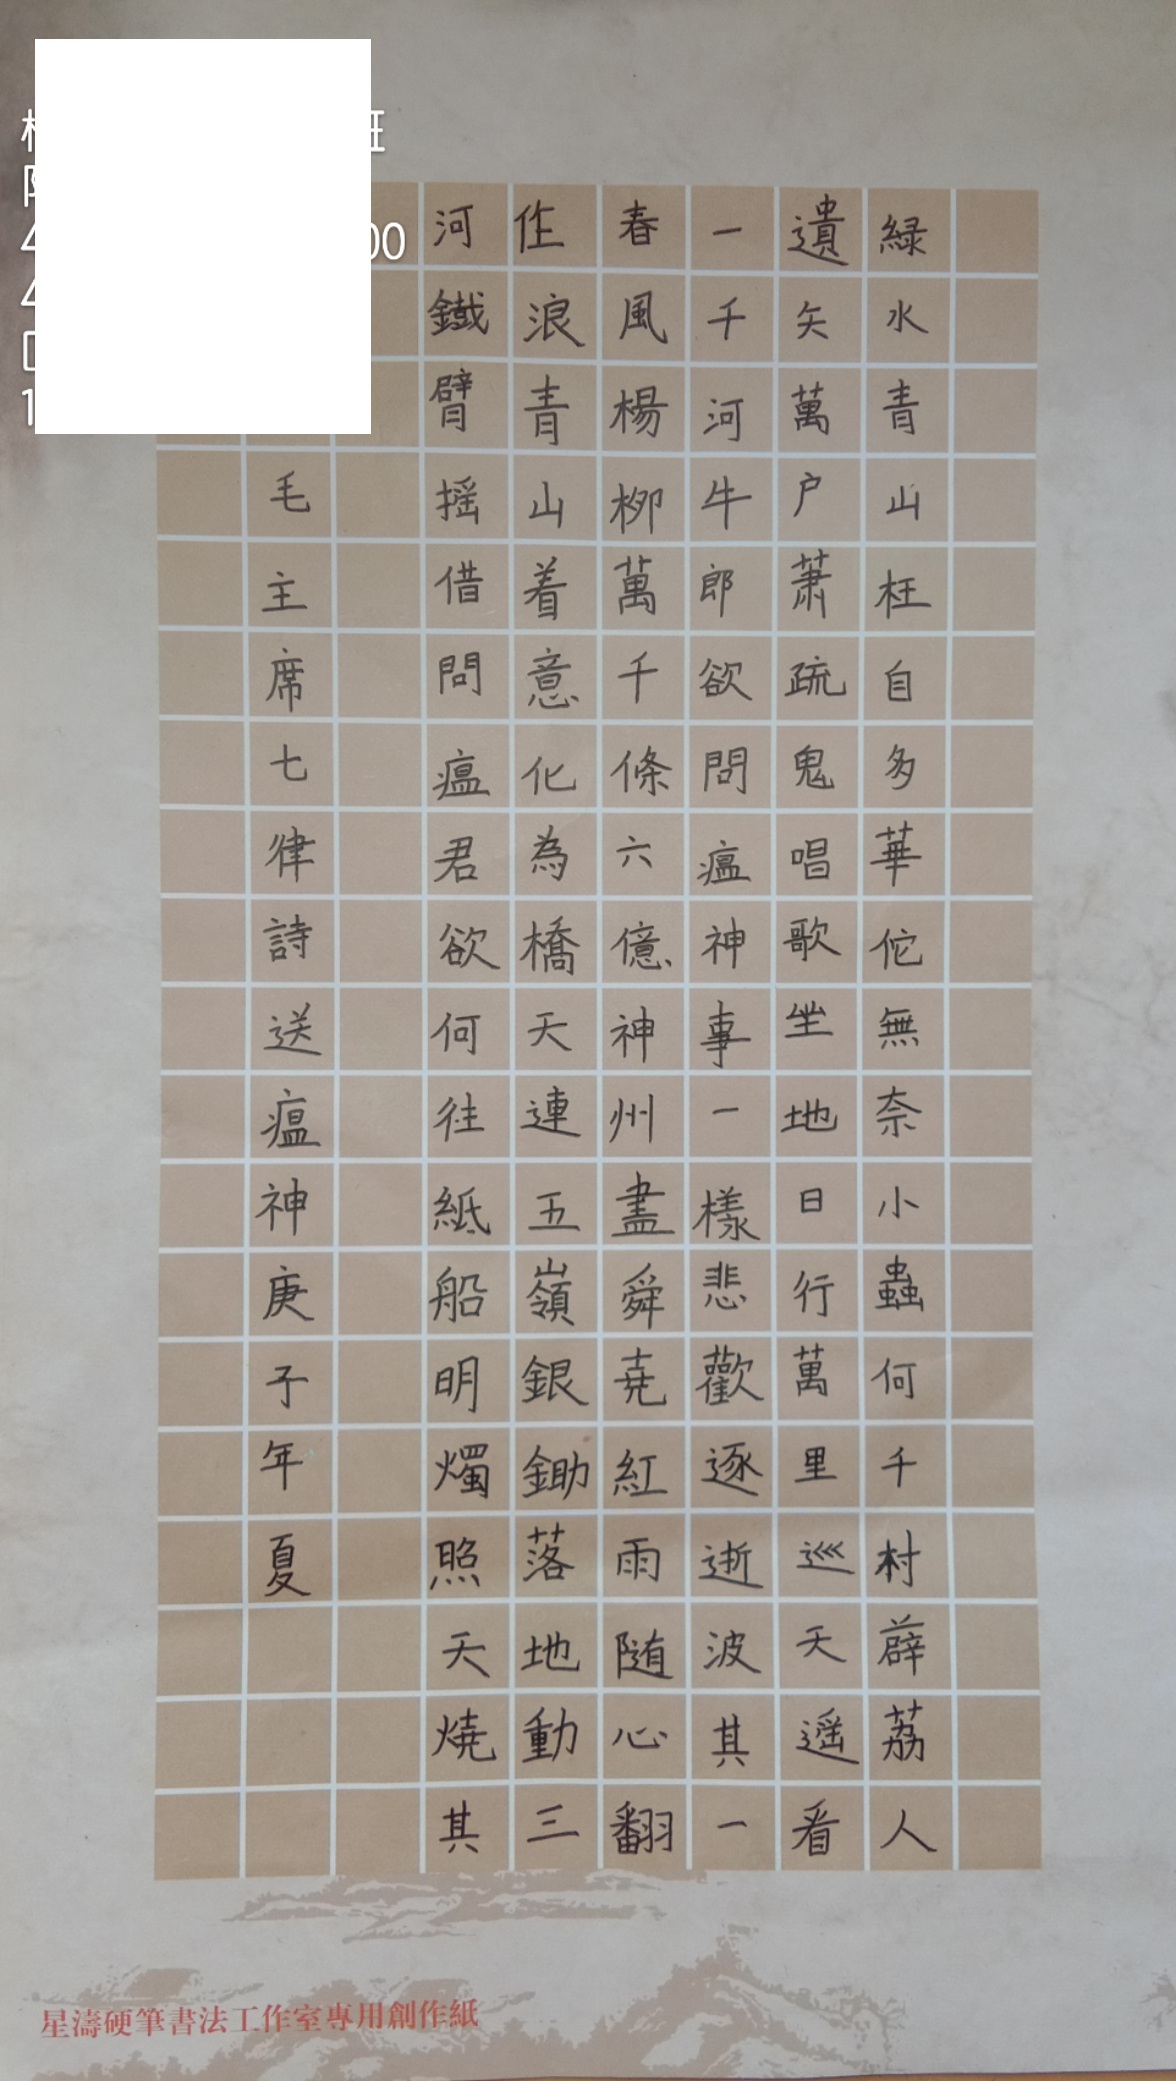 緑水青山枉自多華佗無奈小蟲何千村薜荔人
遺矢萬户蕭疏鬼唱歌坐地日行萬里巡天遥看
一千河牛郎欲問瘟神事一樣悲歡逐逝波其一
春風楊柳萬千條六億神州盡舜尭紅雨随心翻
作浪青山着意化為橋天連五嶺銀鋤落地動三
河鐵臂摇借問瘟君欲何往紙船明燭照天燒其
毛主席七律詩送瘟神庚子年夏
00
星濤硬筆書法工作室專用創作紙